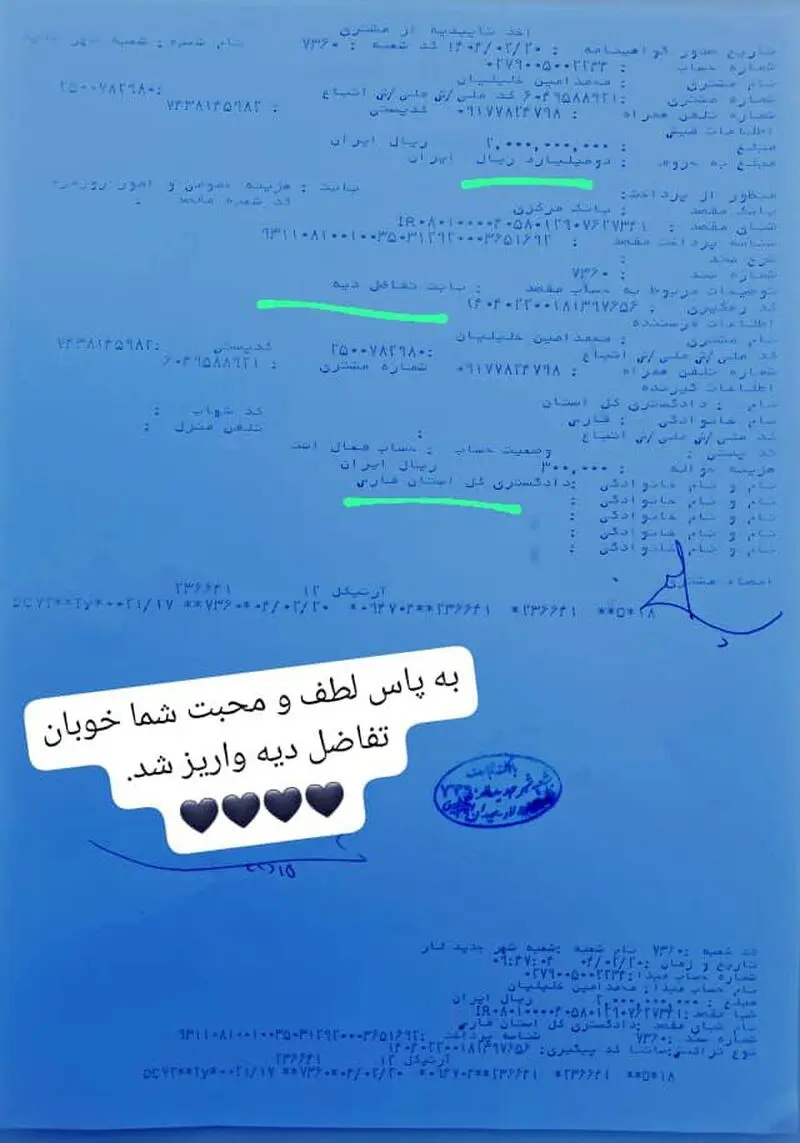 اخذ تاییدیه از مشتری
تاریخ صدور گواهینامه : ۱۴۰۴/۰۲/۲۰ کد شعبه : ۷۳۶۰ نام شعبه : شعبه شهر جدید
شماره حساب : ۰۲۷۹۰۰۵۰۰۲۲۳۴
نام مشتری : محمدامین خلیلیان
شماره مشتری : ۶۰۴۹۵۸۸۹۲۱ کد ملی/ش ملی/ش اتباع :۲۵۰۰۷۸۲۹۸۰
شماره تلفن همراه : ۰۹۱۷۷۸۲۴۷۹۸ کدپستی : ۷۴۳۸۱۴۵۹۸۲
اطلاعات فیش
مبلغ : ۲,۰۰۰,۰۰۰,۰۰۰ ریال ایران
مبلغ به حروف : دومیلیارد ریال ایران
منظور از پرداخت: بابت : هزینه عمومی و امور روزمره
بانک مقصد : بانک مرکزی کد شعبه مقصد :
شبای مقصد : IR۰۸۰۱۰۰۰۰۴۰۵۸۰۱۲۹۰۷۶۲۷۳۴۱
شناسه پرداخت مقصد : ۹۳۱۱۰۸۱۰۰۱۰۰۳۵۰۳۱۲۹۲۰۰۰۳۶۵۱۶۹۲
شرح سند :
شماره سند : ۷۳۶۰
توضیحات مربوط به حساب مقصد : بابت تفاضل دیه
کد رهگیری : ۱۴۰۴۰۲۲۰۰۱۸۱۳۹۷۶۵۶
اطلاعات فرستنده
نام مشتری : محمدامین خلیلیان
کد ملی/ش ملی/ش اتباع :۲۵۰۰۷۸۲۹۸۰ کدپستی :۷۴۳۸۱۴۵۹۸۲
شماره تلفن همراه : ۰۹۱۷۷۸۲۴۷۹۸ شماره مشتری : ۶۰۴۹۵۸۸۹۲۱
اطلاعات گیرنده
نام : دادگستری کل استان
نام خانوادگی : فارس کد شهاب :
کد ملی/ش ملی/ش اتباع : تلفن منزل :
کد پستی : وضعیت حساب : حساب فعال است
هزینه حواله : ۳۰۰,۰۰۰ ریال ایران
نام و نام خانوادگی :دادگستری کل استان فارس
نام و نام خانوادگی :
نام و نام خانوادگی :
نام و نام خانوادگی :
نام و نام خانوادگی :
امضاء مشتری
آرتیکل ۱۲ ۲۳۶۶۴۱
۲۳۶۶۴۱* ۰۹۴۷۰۴**۲۳۶۶۴۱* **۷۳۶۰*۰۴/۰۲/۲۰
به پاس لطف و محبت شما خوبان
تفاضل دیه واریز شد.
🖤🖤🖤🖤
کد شعبه :۷۳۶۰ نام شعبه :شعبه شهر جدید لار
تاریخ و زمان :۰۴/۰۲/۲۰ ۰۹:۴۷:۰۴
شماره حساب مبدا:۰۲۷۹۰۰۵۰۰۲۲۳۴
نام حساب مبدا: محمدامین خلیلیان
مبلغ : ۲,۰۰۰,۰۰۰,۰۰۰ ریال ایران
شبا مقصد:IR۰۸۰۱۰۰۰۰۴۰۵۸۰۱۲۹۰۷۶۲۷۳۴۱
نام شبای مقصد :دادگستری کل استان فارس
شماره سند :۷۳۶۰ شناسه پرداخت :۹۳۱۱۰۸۱۰۰۱۰۰۳۵۰۳۱۲۹۲۰۰۰۳۶۵۱۶۹۲
نوع تراکنش:ساتنا کد پیگیری: ۱۴۰۴۰۲۲۰۰۱۸۱۳۹۷۶۵۶
آرتیکل ۱۲ ۲۳۶۶۴۱